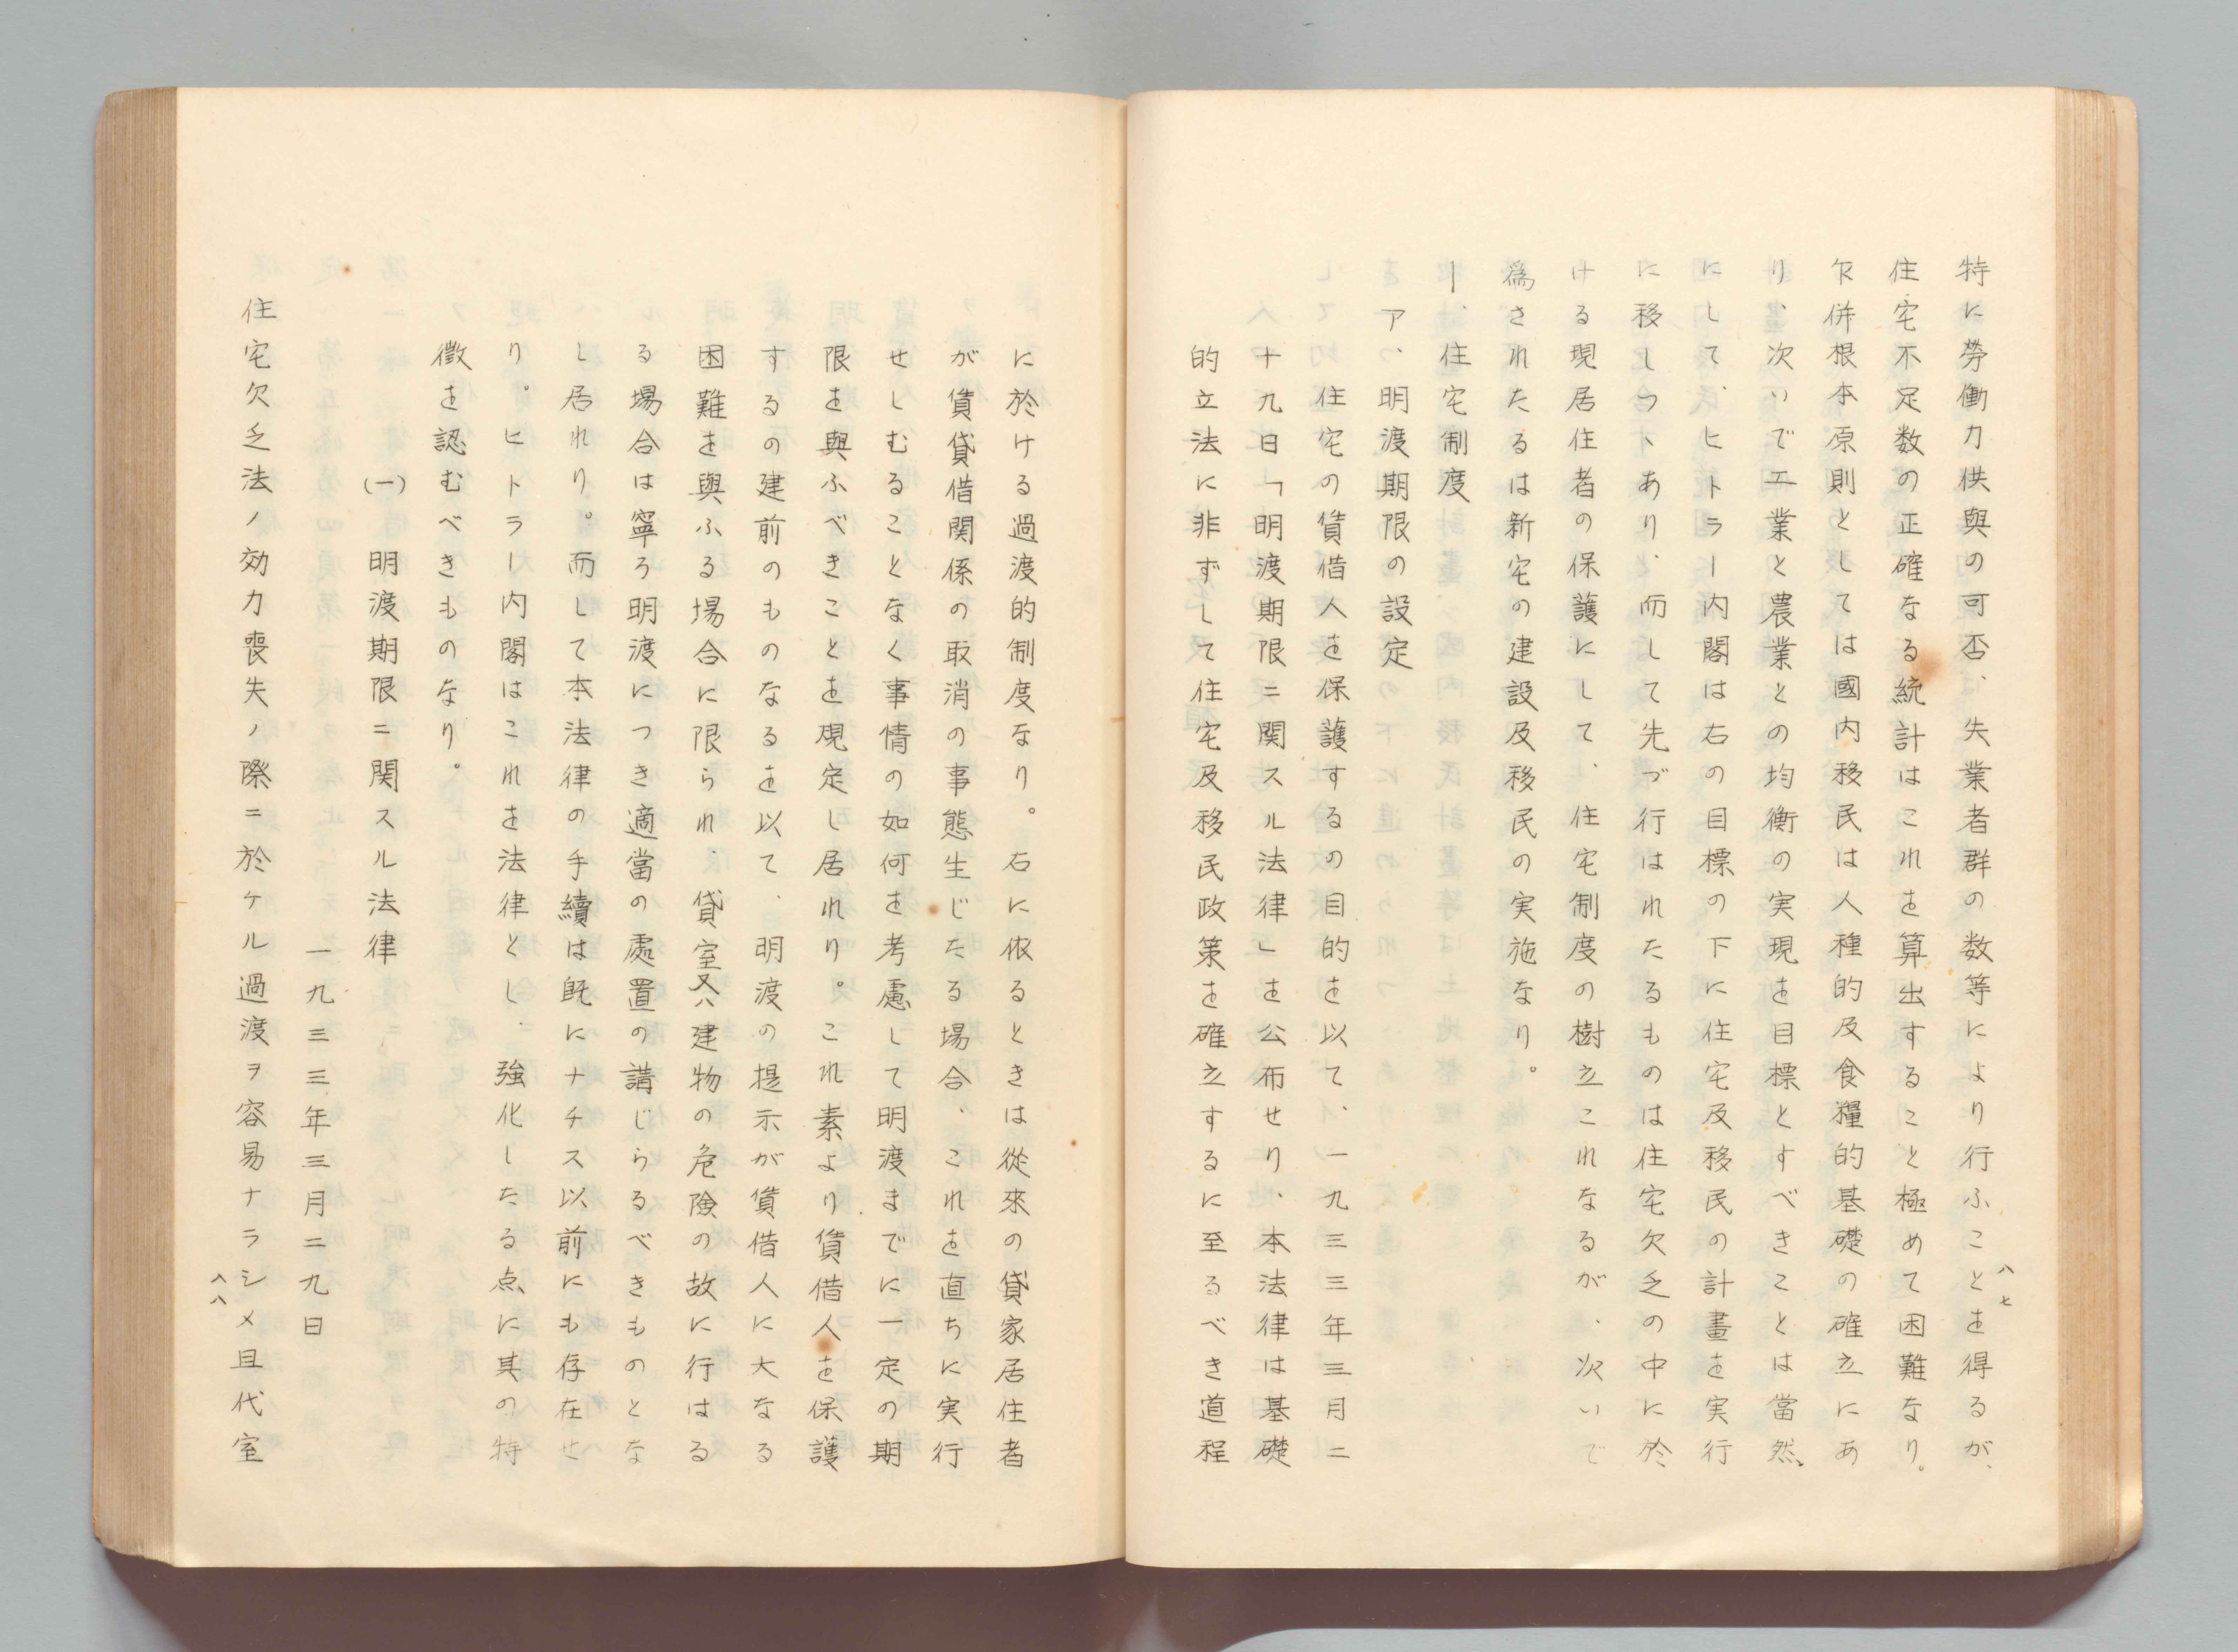 特に勞働力供與の可否、失業者群の数等により行ふことを得るが、
住宅不定数の正確なる統計はこれを算出すること極めて困難なり。
併根本原則としては國内移民は人種的及食糧的基礎の確立にあ
り、次いで工業と農業との均衡の実現を目標とすべきことは當然
にして、ヒトラー内閣は右の目標の下に住宅及移民の計畫を実行
に移しつゝあり、而して先づ行はれたるものは住宅欠乏の中に於
ける現居住者の保護にして、住宅制度の樹立これなるが、次いで
爲されたるは新宅の建設及移民の実施なり。
一、住宅制度
ア、明渡期限の設定
住宅の賃借人を保護するの目的を以て、一九三三年三月二
十九日「明渡期限ニ関スル法律」を公布せり、本法律は基礎
的立法に非ずして住宅及移民政策を確立するに至るべき道程
八七
に於ける過渡的制度なり。右に依るときは從來の貸家居住者
が賃貸借関係の取消の事態生じたる場合、これを直ちに実行
せしむることなく事情の如何を考慮して明渡までに一定の期
限を與ふべきことを規定し居れり。これ素より賃借人を保護
するの建前のものなるを以て、明渡の提示が賃借人に大なる
困難を與ふる場合に限られ、貸室又ハ建物の危険の故に行はる
る場合は寧ろ明渡につき適當の處置の講じらるべきものとな
し居れり。而して本法律の手續は既にナチス以前にも存在せ
り。ヒトラー内閣はこれを法律とし、強化したる点に其の特
徴を認むべきものなり。
(一)明渡期限ニ関スル法律
一九三三年三月二九日
住宅欠乏法ノ効力喪失ノ際ニ於ケル過渡ヲ容易ナラシメ且代室
八八